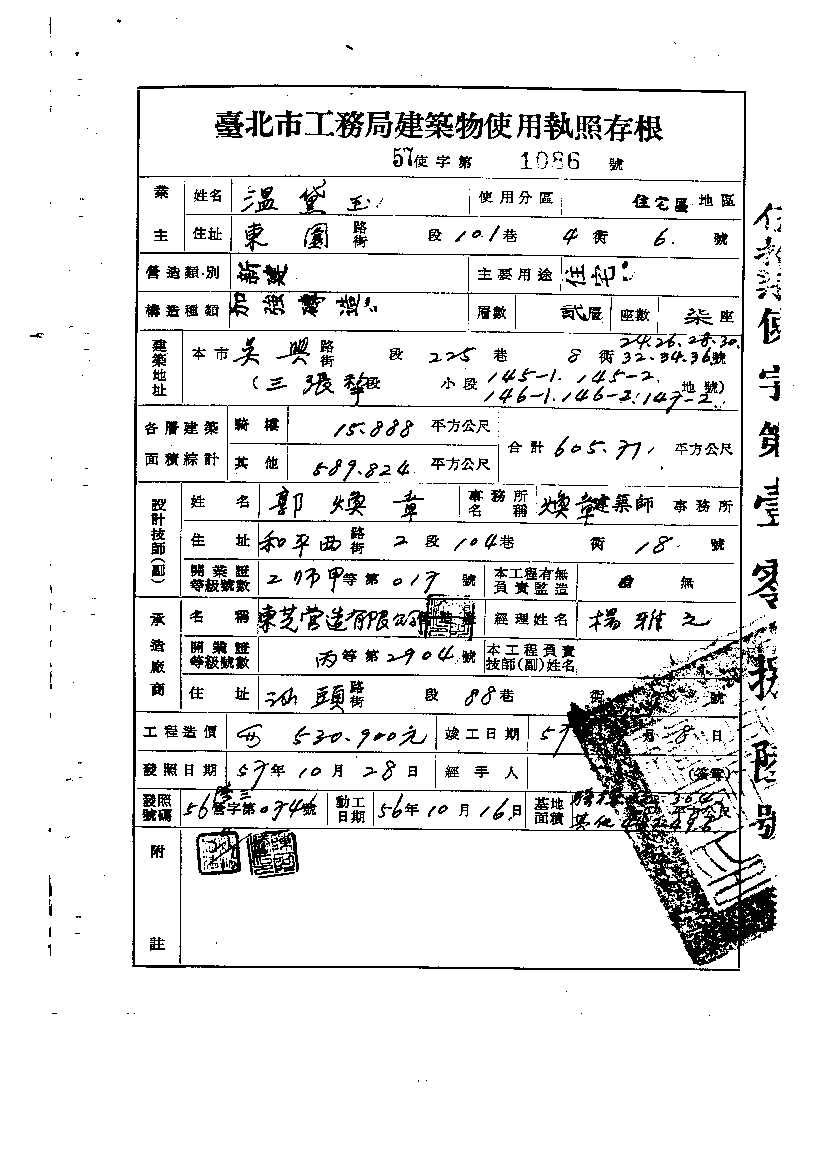 臺北市工務局建築物使用執照存根
57使字第 1086 號
業主 姓名 溫黛玉 使用分區 住宅區 地區
住址 東園 路街 段 101巷 4衖 6. 號
營造類別 新建 主要用途 住宅
構造種類 加強磚造 層數 貳層 座數 柒座
建築地址 本市 吳興 路街 段 225巷 8衖 24.26.28.30.32.34.36號
(三張犂段 小段 145-1. 145-2. 146-1. 146-2. 147-2. 地號)
各層建築面積綜計 騎樓 15.888 平方公尺 合計 605.71 平方公尺
其他 589.824 平方公尺
設計技師(副) 姓名 郭煥章 事務所名稱 煥章建築師 事務所
住址 和平西 路街 2段 104巷 衖 18. 號
開業證等級號數 甲等第017號 本工程有無負責監造 無
承造廠商 名稱 東芝營造有限公司 經理姓名 楊雅之
開業證等級號數 丙等第2904號 本工程負責技師(副)姓名
住址 汕頭 路街 段 88巷 號
工程造價 530.900元 竣工日期 57 月8日
發照日期 57年10月28日 經手人
發照號碼 56營字第0746號 動工日期 56年10月16日 基地面積
附註
使字第壹零捌陸號